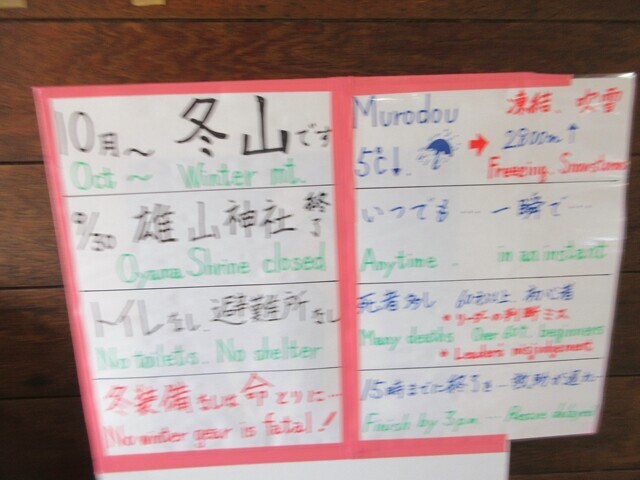 10月～ 冬山です
Oct ～ Winter mt.
9/30 雄山神社 終了
Oyama Shrine closed
トイレなし、避難所なし
No toilets. No shelter
冬装備なしは命とりに…
No winter gear is fatal!
Murodou
5℃↓
凍結、吹雪
2800m↑
Freezing. Snowstorm
いつでも … 一瞬で…
Anytime . in an instant
死者多し 60才以上、初心者
* リーダーの判断ミス
Many deaths Over 60Y. beginners
* Leader's misjudgement
15時までに終了を… 救助が遅れ…
Finish by 3pm … Rescue delayed